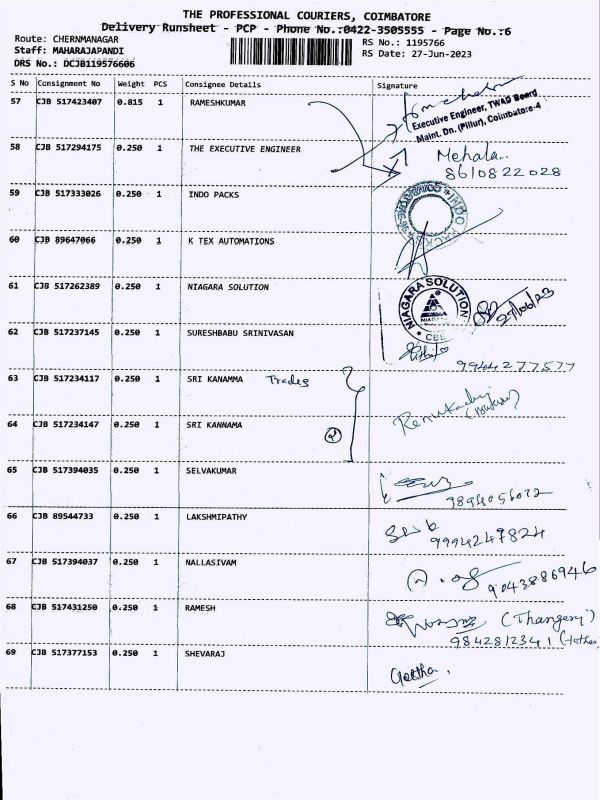 THE PROFESSIONAL COURIERS, COIMBATORE
Delivery Runsheet - PCP - Phone No.:0422-3505555 - Page No.:6
Route: CHERNMANAGAR
RS No.: 1195766
Staff: MAHARAJAPANDI
RS Date: 27-Jun-2023
DRS No.: DCJB119576606
S No Consignment No Weight PCS Consignee Details Signature
57 CJB 517423407 0.815 1 RAMESHKUMAR
Executive Engineer, TWAD Board
Maint. Dn. (Pillur), Coimbatore-4
58 CJB 517294175 0.250 1 THE EXECUTIVE ENGINEER Mehala
8610822028
59 CJB 517333026 0.250 1 INDO PACKS
INDO PACKS COIMBATORE
60 CJB 89647066 0.250 1 K TEX AUTOMATIONS
61 CJB 517262389 0.250 1 NIAGARA SOLUTION
NIAGARA SOLUTION
NIAGARA
CBE
27/06/23
62 CJB 517237145 0.250 1 SURESHBABU SRINIVASAN
9944277577
63 CJB 517234117 0.250 1 SRI KANAMMA Trades
Renukadevi
64 CJB 517234147 0.250 1 SRI KANNAMA
2
65 CJB 517394035 0.250 1 SELVAKUMAR
9894056072
66 CJB 89544733 0.250 1 LAKSHMIPATHY
9994247824
67 CJB 517394037 0.250 1 NALLASIVAM
9043886946
68 CJB 517431250 0.250 1 RAMESH (Thangeny)
9842812341
69 CJB 517377153 0.250 1 SHEVARAJ
Geetha.